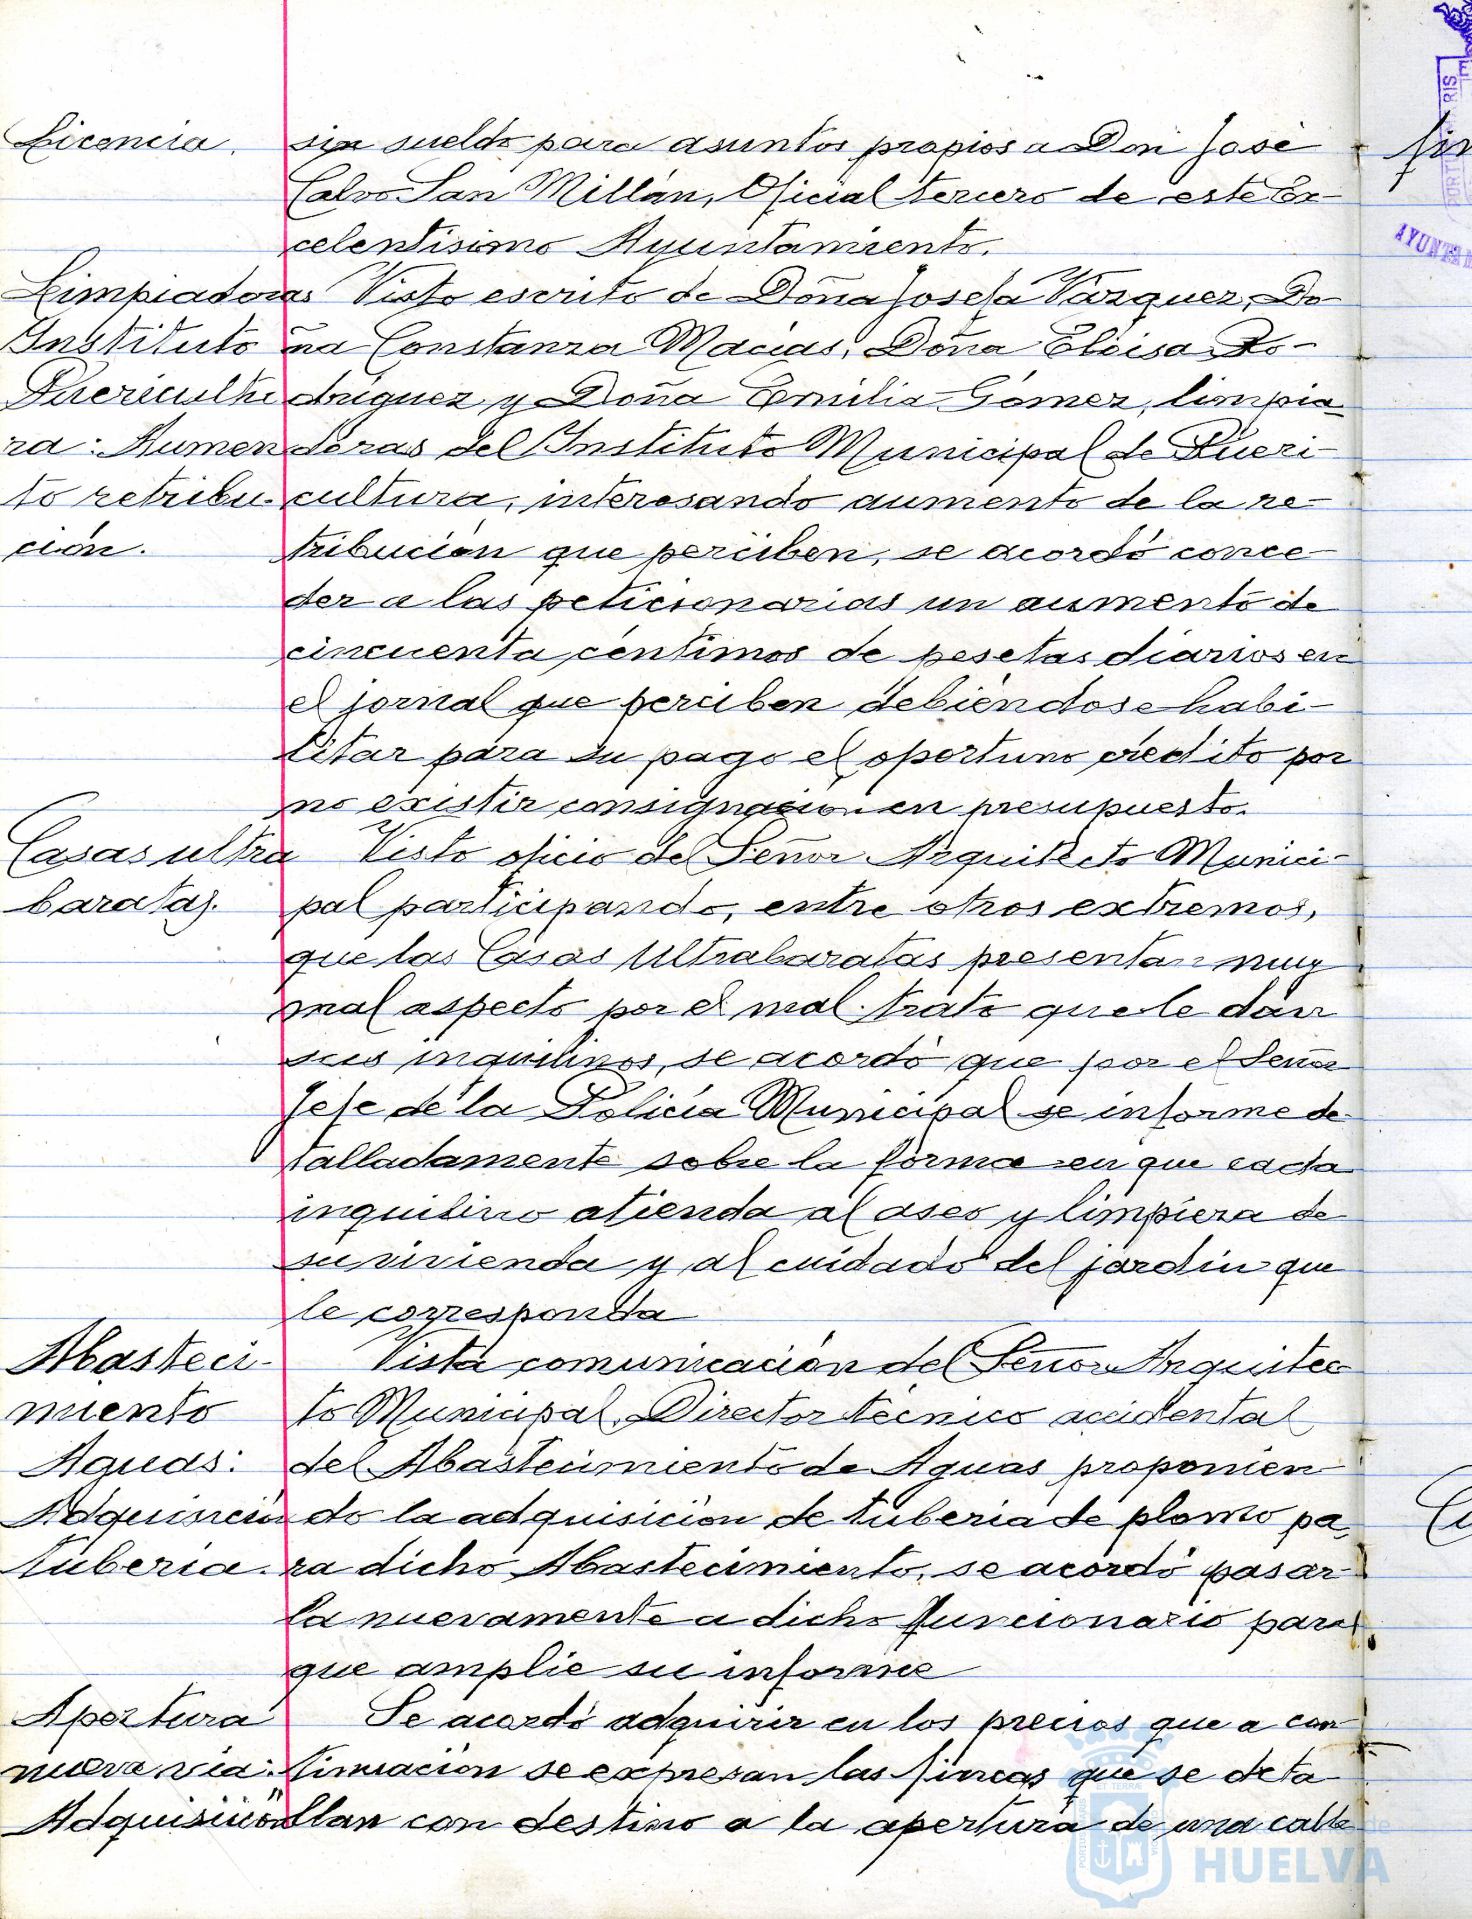 Licencia. sin sueldo para asuntos propios a Don José
Calvo San Millán, Oficial tercero de este Ex-
celentísimo Ayuntamiento.
Limpiadoras Visto escrito de Doña Josefa Vázquez, Do-
Instituto ña Constanza Macías, Doña Eloisa Ro-
Puericultu dríguez y Doña Emilia Gómez, limpia-
ra: Aumen doras del Instituto Municipal de Pueri-
to retribu- cultura, interesando aumento de la re-
ción. tribución que perciben, se acordó conce-
der a las peticionarias un aumento de
cincuenta céntimos de pesetas diarios en
el jornal que perciben debiéndose habi-
litar para su pago el oportuno crédito por
no existir consignación en presupuesto.
Casas ultra Visto oficio del Señor Arquitecto Munici-
baratas. pal participando, entre otros extremos,
que las Casas Ultrabaratas presentan muy
mal aspecto por el mal trato que le dan
sus inquilinos, se acordó que por el Señor
Jefe de la Policía Municipal se informe de-
talladamente sobre la forma en que cada
inquilino atienda al aseo y limpieza de
su vivienda y al cuidado del jardín que
le corresponda
Abasteci- Vista comunicación del Señor Arquitec
miento to Municipal, Director técnico accidental
Aguas: del Abastecimiento de Aguas proponien
Adquisición do la adquisición de tubería de plomo pa-
tubería. ra dicho Abastecimiento, se acordó pasar
la nuevamente a dicho funcionario para
que amplíe su informe
Apertura Se acordó adquirir en los precios que a con-
nueva vía: tinuación se expresan las fincas que se deta
Adquisición llan con destino a la apertura de una calle
HUELVA